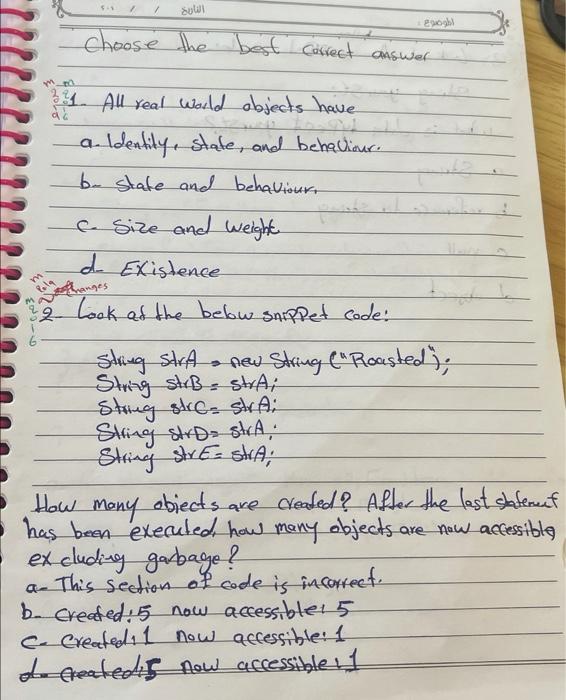 Choose the best correct answer
1- All real world objects have
a- Identity, state, and behaviour.
b- state and behaviour.
c- Size and weight
d- Existence
changes
2- Look at the below snippet code:
String strA = new String ("Roasted");
String strB = strA;
String strC = strA;
String strD = strA;
String strE = strA;
How many objects are created? After the last statement
has been executed, how many objects are now accessible
excluding garbage?
a- This section of code is incorrect.
b- created: 5 now accessible: 5
c- Created: 1 now accessible: 1
d- created: 5 now accessible: 1